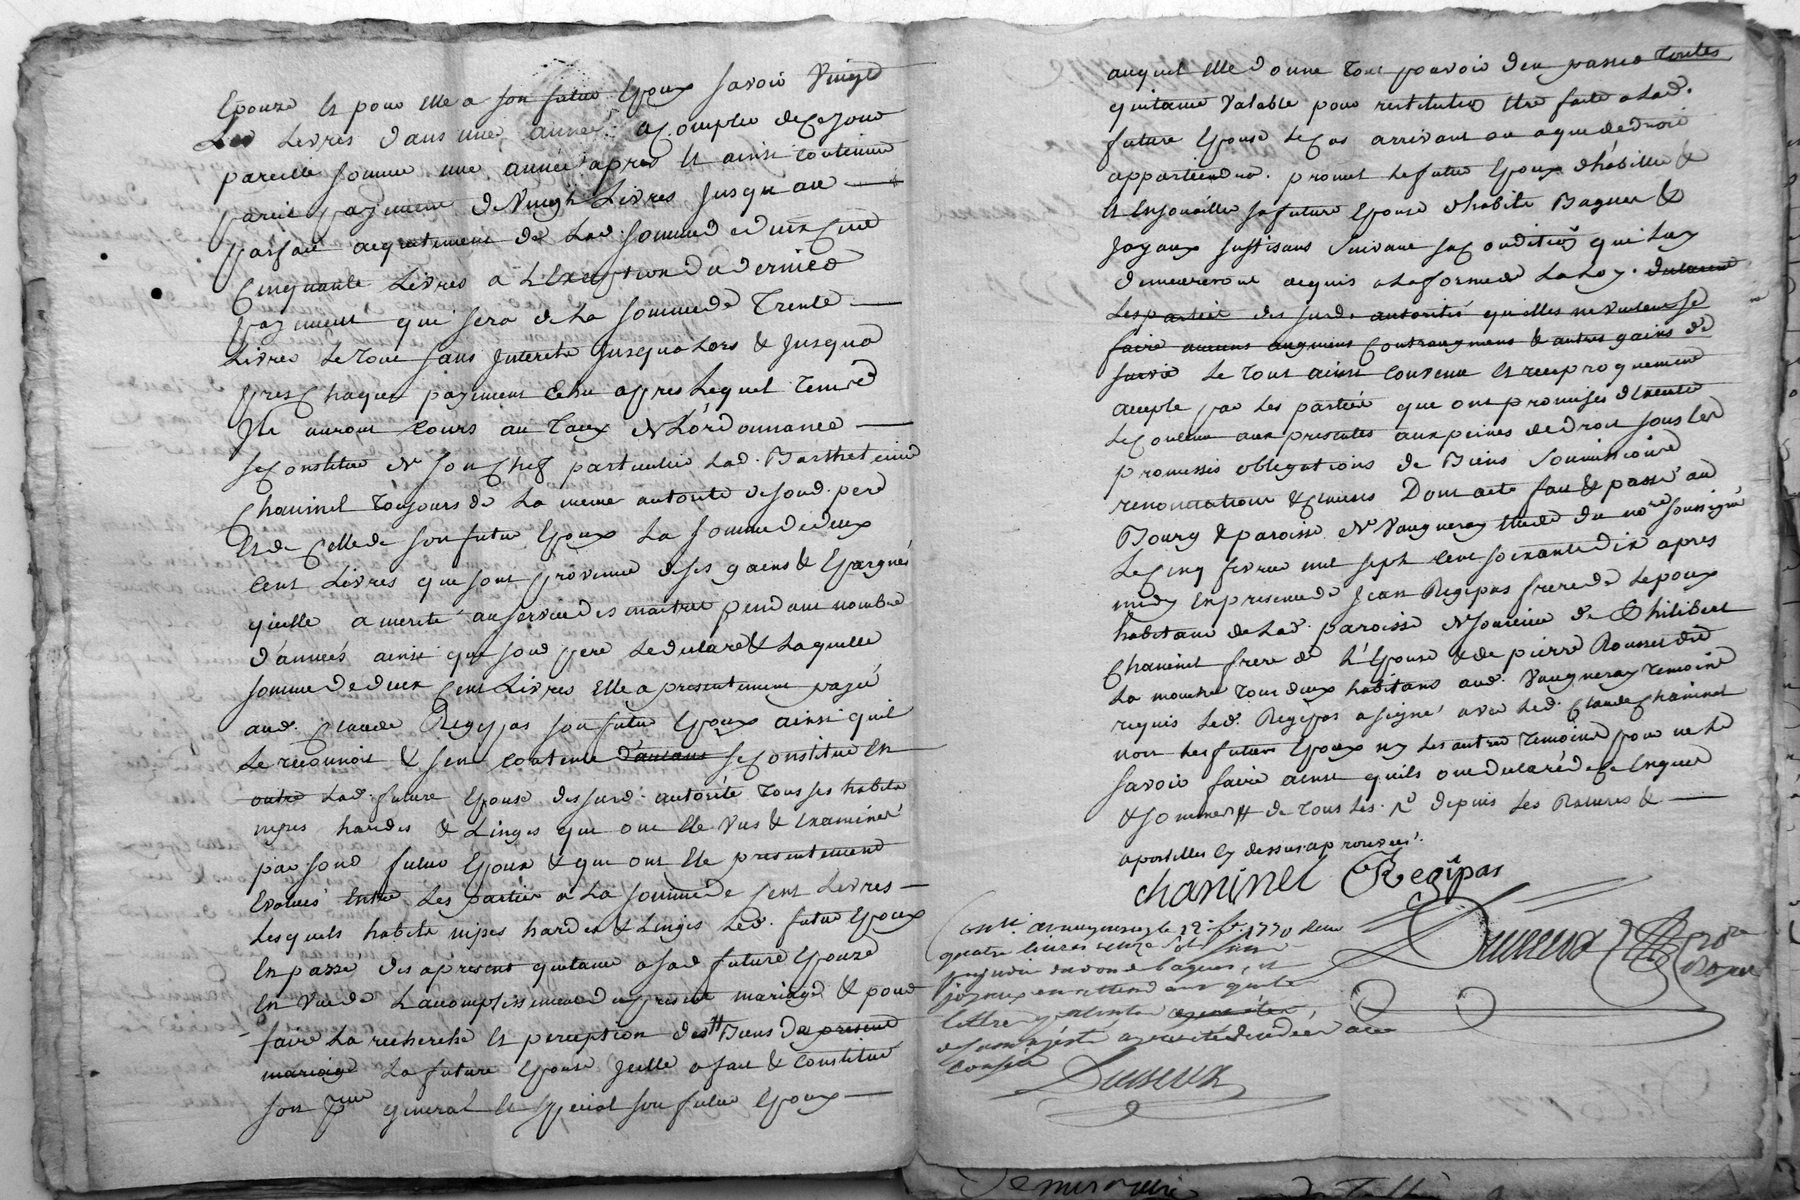 Epouze et pour elle a son futur Epoux savoir Vingt
Livres dans une année a Compter de ce jour
pareille somme une année apres et ainsi Continuer
pareil payement de Vingt Livres Jusqu au
parfait acquitement de lad. somme de deux Cent
Cinquante Livres a L'Exception du dernier
payement qui sera de la somme de Trente
Livres le tout sans Interets Jusqu a lors & Jusqua
pres Chaque payement Echu apres lequel temps
Ils auront Cours au Taux de L'ordonnance
se Constitue de son Chef particulier lad. Barthelemie
Chaninel toujours de la meme autorite de sond. pere
Et de Celle de son futur Epoux la somme de deux
Cent Livres que sont provenue de ses gains & Epargnes
qu'elle a merité au service des maitres pendant nombre
d'années ainsi que sond pere le declare & laquelle
somme de deux Cent Livres Elle a presentement payé
aud. Claude Regipas son futur Epoux ainsi qu'il
le reconnoit & s'en contente d'autant se Constitue En
outre lad. future Epouse dessusd. autorité tous ses habits
nipes hardes & Linges que ont Ete Vus & Examinés
par sond futur Epoux & que ont Ete presentement
Evalués Entre les parties a la somme de Cent Livres
lesquels habits nipes hardes & Linges led. futur Epoux
En passe des apresent quitance a sad future Epouze
En Vue de L'acomplissement du present mariage & pour
faire la recherche Et perception des Biens du present
mariage la future Epouse Icelle a fait & Constitué
son general Et special son futur Epoux
auquel Elle donne tout pouvoir d'en passer toutes
quitance Valable pour restitution Etre faite a lad.
future Epouse le Cas arrivant ou a qui de droit
appartiendra. promet le futur Epoux d'habiller &
Et Enjouailler sa future Epouse d'habits Bagues &
Joyaux suffisans suivant sa Condition qui luy
demeureront acquis a la forme de la Loy.
Les parties des susd. autorités qu'elles ne veulent se
faire aucuns augmens Contraugmens & autres gains de
survie le tout ainsi Convenu Et reciproquement
accepté par les parties que ont promises d'executer
le Contenu aux presentes aux peines de droit sous les
promesses obligations de Biens soumissions
renonciations & Clauses Dont acte fait & passé au
Bourg & paroisse de Vaugneray Etude du nore soussigné
Le Cinq fevrier mil sept Cent soixante dix apres
midy En presence de Jean Regipas frere de l'epoux
habitant de lad. paroisse de de Philibert
Chaninel frere de L'Epouse & de pierre Rousset dit
la tous deux habitans aud. Vaugneray temoins
requis led. Regipas a signé avec led. Claude Chaninel
non les futurs Epoux ny les autres temoins pour ne le
savoir faire ainsi qu'ils ont declaré de ce Enquis
& sommés de tous les depuis les Ratures &
apostilles Cy dessus aprouvés.
chaninel Regipas
Contr. a vaugneray le 12 f. 1770
quatre livres seize sols
prejudice du don de bagues, et
joyaux en attendant que les
lettres patentes
de sa majesté
conseil